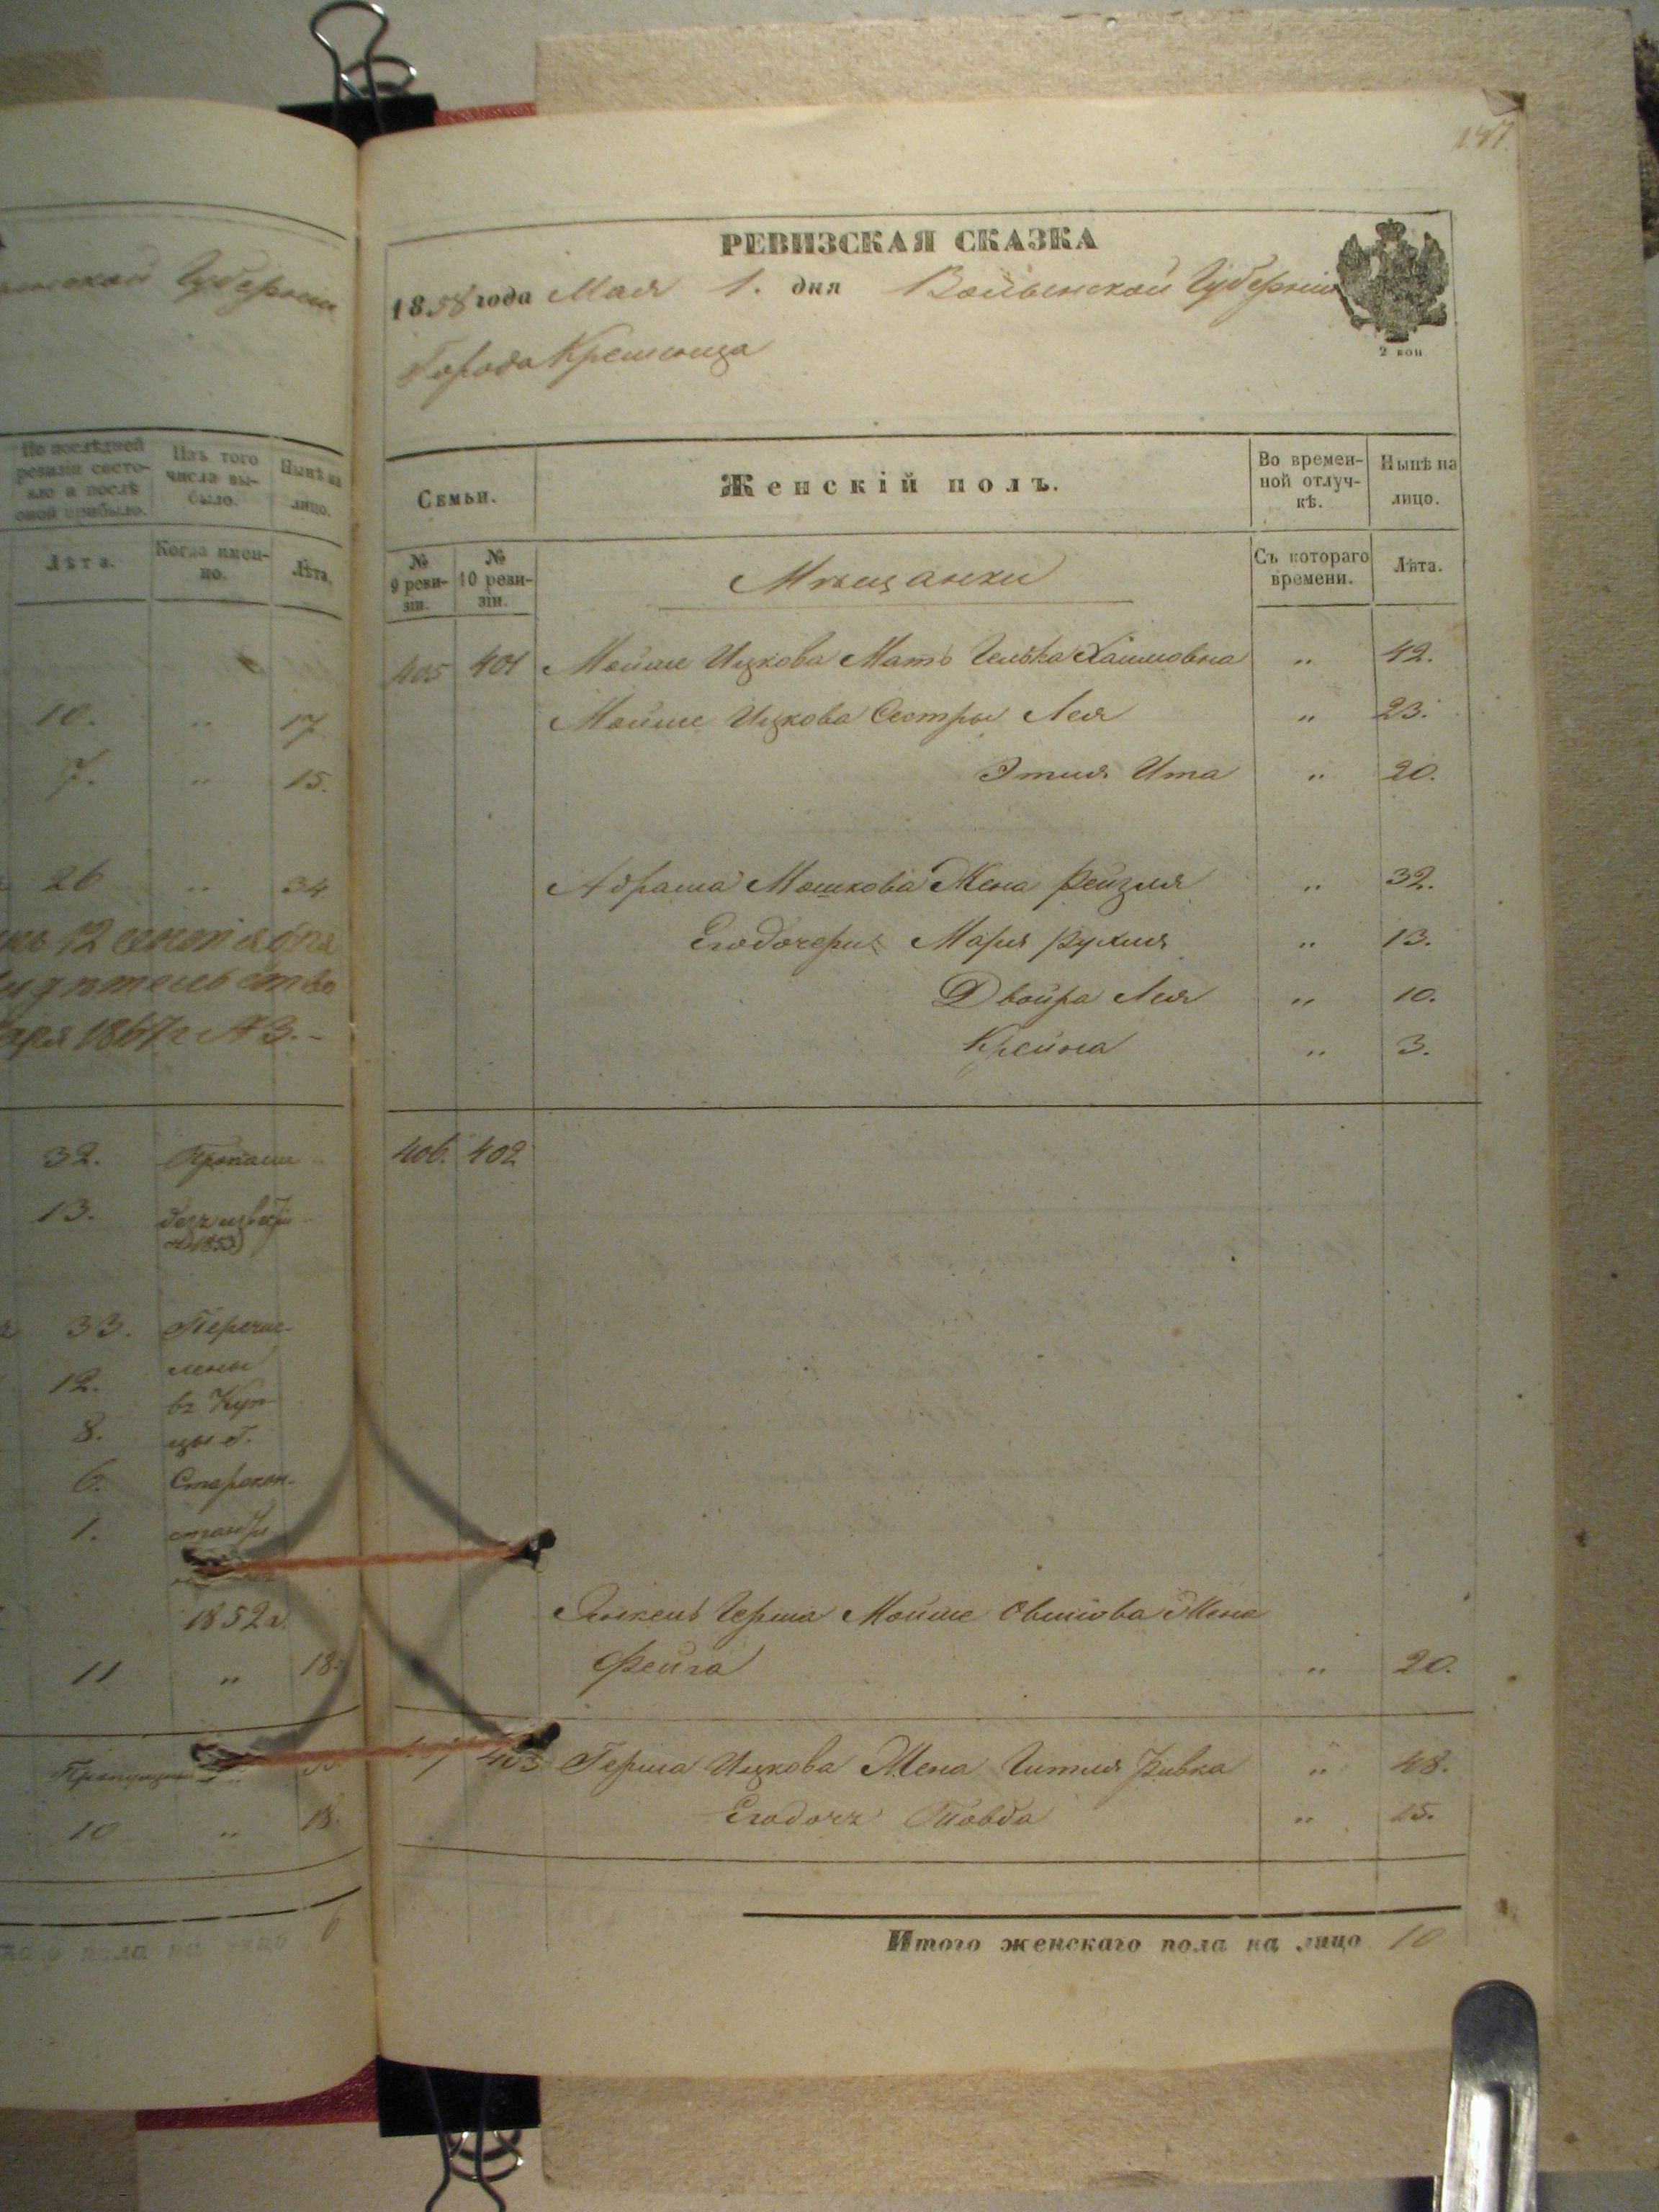 Губерніи
По послѣдней ревизіи состояло и послѣ оной прибыло.
Изъ того числа выбыло.
Нынѣ на лицо.
Лѣта.
Когда именно.
Лѣта.
10. " 17
7. " 15.
26 " 34
12 сентября
1867 г № 3.
32. Пропали
13. безъ
1853
33. Перечис-
12. лены
въ Куп-
8. цы г.
6. Старокон-
1.
1852 г.
11 " 18.
10 " 18.
6
147.
РЕВИЗСКАЯ СКАЗКА
1858 года Мая 1. дня Волынской Губерніи
2 коп
Города Кременца
Семьи.
Женскій полъ.
Во временной отлучкѣ.
Нынѣ на лицо.
№ 9 ревизіи.
№ 10 ревизіи.
Мѣщанки
Съ котораго времени.
Лѣта.
405 401 Мойше Ицкова Мать Гелька Хаимовна " 42.
Мойше Ицкова Сестры Лея " 23.
Этля Ита " 20.
Абрама Мошкова Жена Рейзля " 32.
Его дочери Марія Рухля " 13.
Двойра Лея " 10.
Крейна " 3.
406. 402
Герша Мойше Овшіова Жена
Фейга " 20.
403 Герша Ицкова Жена Гитля Ривка " 48.
Его дочь Товба " 15.
Итого женскаго пола на лицо 10